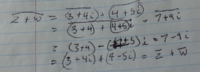 z+w̅ = (3+4i) + (4+5i)
= (3+4) + (4+5)i = 7+9i
= (3+4) - (4+5)i = 7-9i
= (3-4i) + (4-5i) = z̅ + w̅